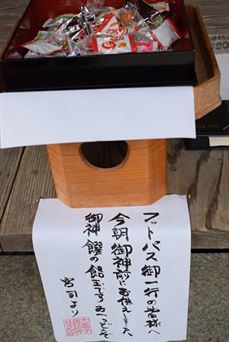 フットパス御一行の皆様へ
今朝御神前にお供えしました
御神饌の飴玉です
宮司より